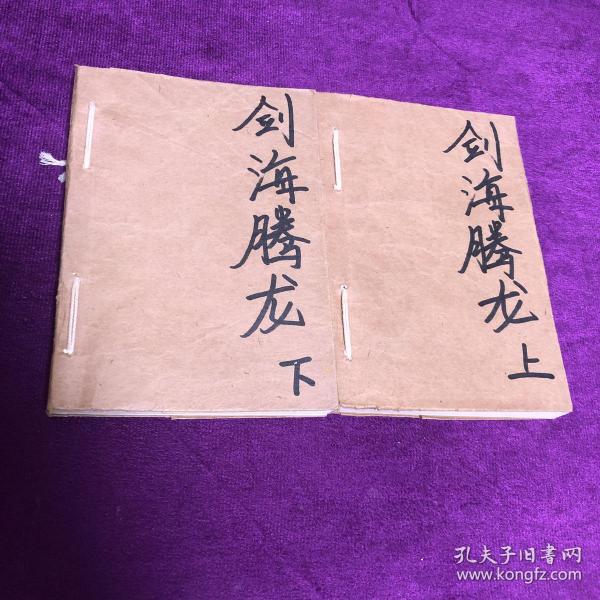 剑海腾龙
下
剑海腾龙
上
孔夫子旧書网
www.kongfz.com